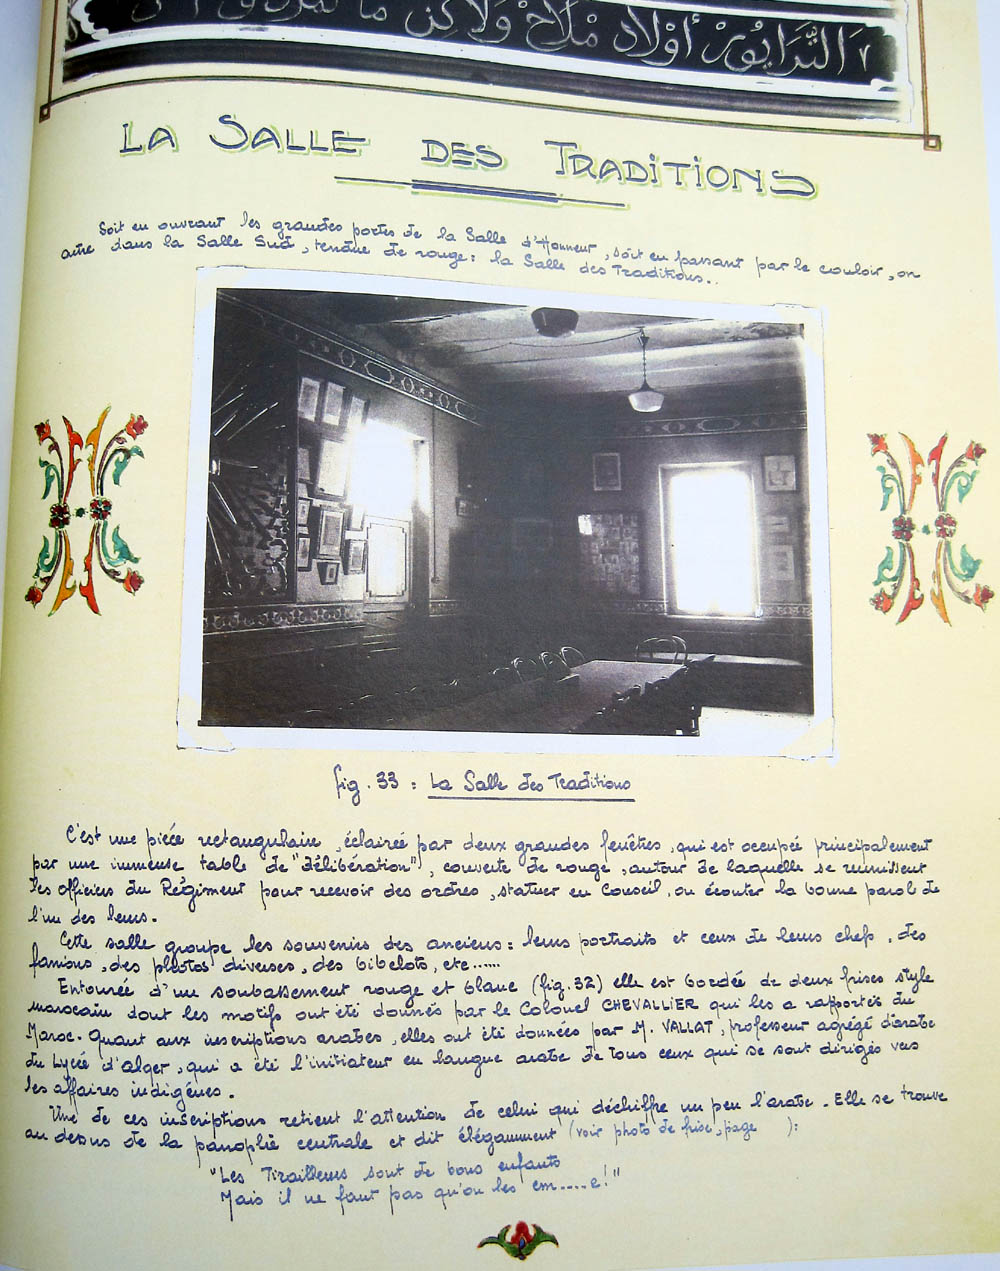 ٧ التَّرَايُورْ أوْلَادْ مْلَاحْ وَلَاكِنْ مَا
LA SALLE DES TRADITIONS
Soit en ouvrant les grandes portes de la Salle d'Honneur, soit en passant par le couloir, on
entre dans la Salle Sud, tendue de rouge : la Salle des Traditions..
fig. 33 : La Salle des Traditions
C'est une pièce rectangulaire, éclairée par deux grandes fenêtres, qui est occupée principalement
par une immense table de "délibération", couverte de rouge, autour de laquelle se reunissent
les officiers du Régiment pour recevoir des ordres, statuer en Conseil, ou écouter la bonne parole de
l'un des leurs.
Cette salle groupe les souvenirs des anciens : leurs portraits et ceux de leurs chefs, des
fanions, des photos diverses, des bibelots, etc.....
Entourée d'un soubassement rouge et blanc (fig. 32) elle est bordée de deux frises style
marocain dont les motifs ont été donnés par le Colonel CHEVALLIER qui les a rapportés du
Maroc. Quant aux inscriptions arabes, elles ont été données par M. VALLAT, professeur agrégé d'arabe
du Lycée d'alger, qui a été l'initiateur en langue arabe de tous ceux qui se sont dirigés vers
les affaires indigénes.
Une de ces inscriptions retient l'attention de celui qui déchiffre un peu l'arabe. Elle se trouve
au dessus de la panoplie centrale et dit élégamment (voir photo de frise, page ):
"Les Tirailleurs sont de bons enfants
Mais il ne faut pas qu'on les em.....e!"